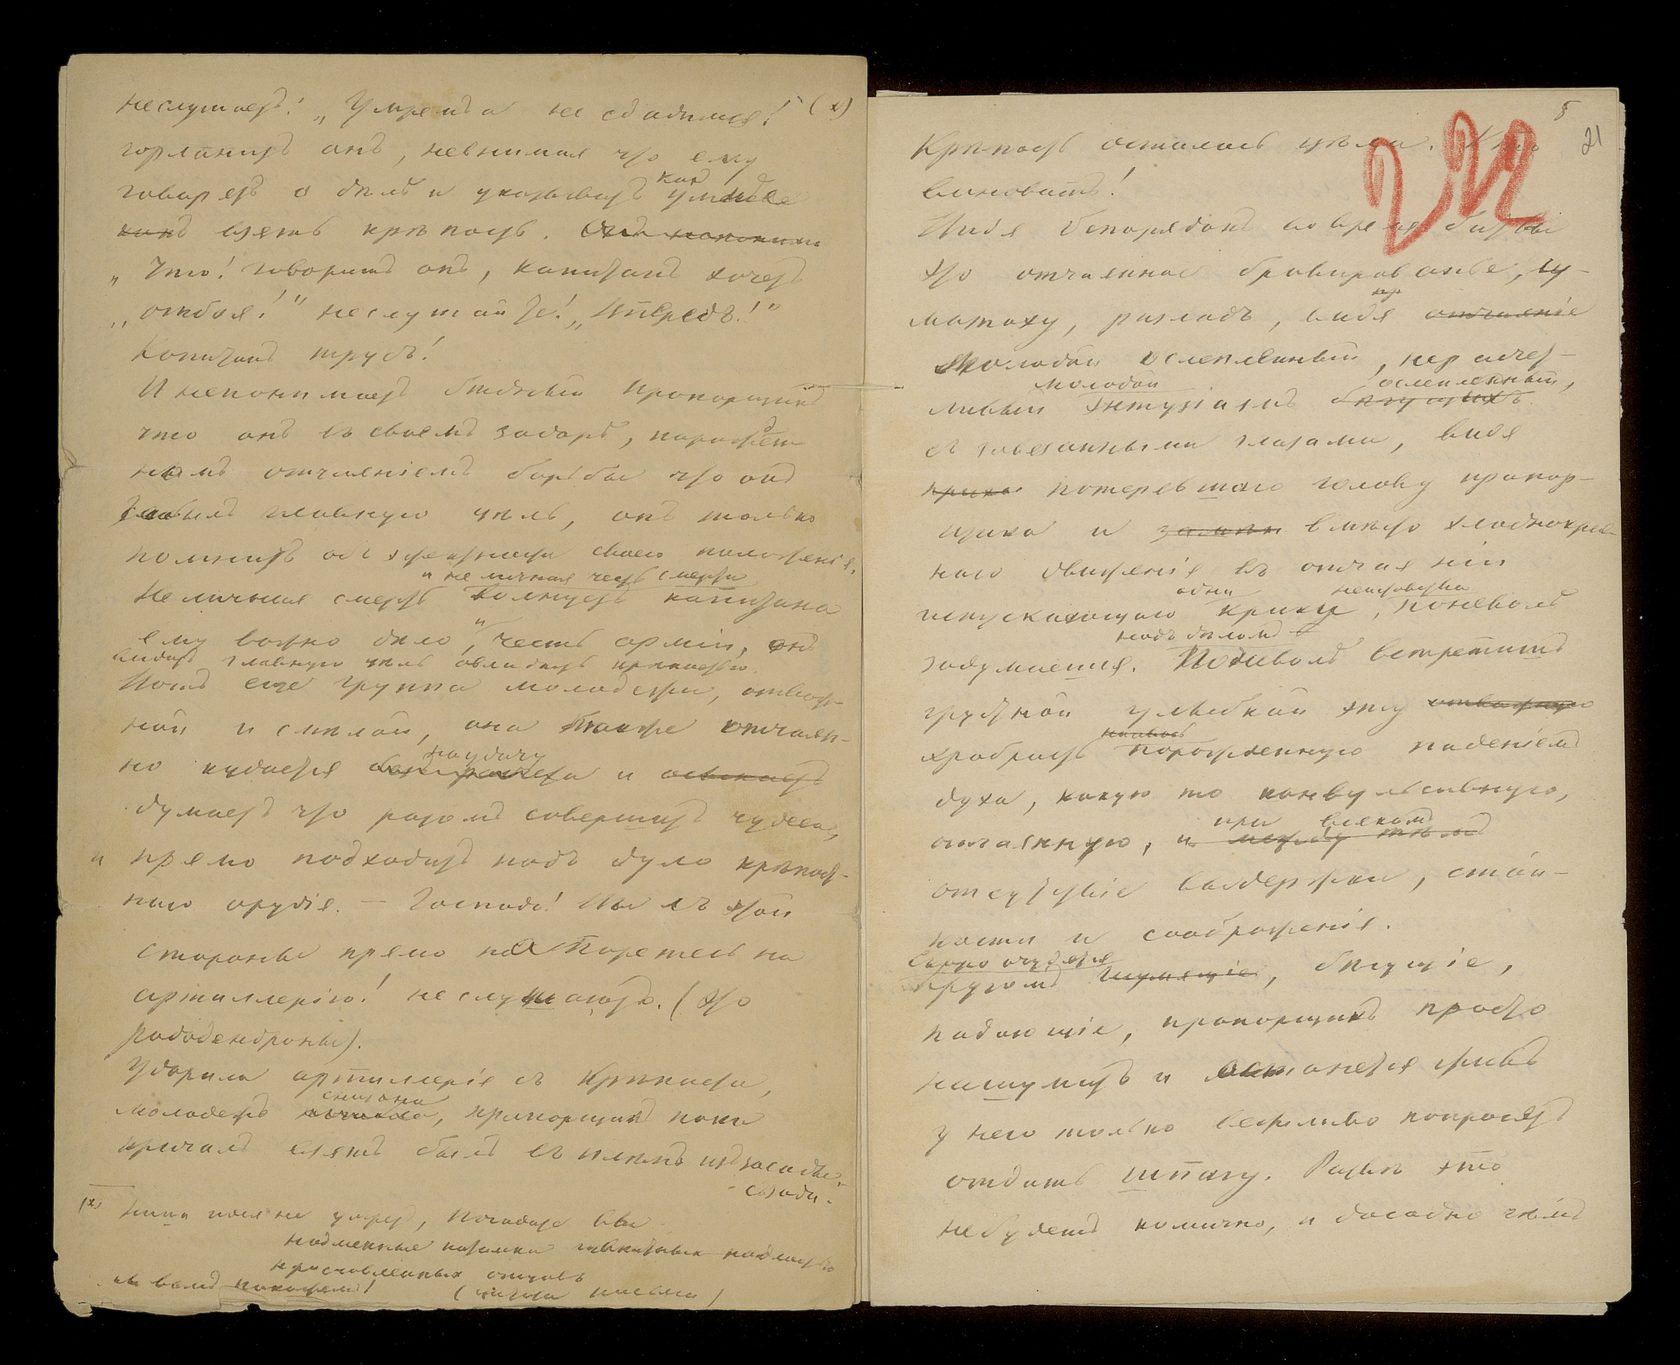 неслушаетъ! „Умремъ а не сдадимся!“ (x)
горланитъ онъ, невнимая что ему
говорятъ о дѣлѣ и указываютъ какъ умнѣе
какъ взять крѣпость.
„Что! говоритъ онъ, Капитанъ хочетъ
„отбоя!“ неслушайте! „Впередъ!“
Капитанъ трусъ!
И непонимаетъ бѣдный Прапорщикъ
что онъ въ своемъ задорѣ, порожден-
номъ отчаяніемъ борьбы что онъ
забылъ главную цѣль, онъ только
помнитъ объ эфектности своего положенія.
и не личная честь смерти
Неличная смерть волнуетъ капитана
ему важно дѣло, и честь арміи, онъ
видитъ главную цѣль овладѣть крѣпостью.
Вотъ еще группа молодежи, отваж-
ной и смѣлой, она также отчаян-
но кидается наудачу безъ расчета и
думаетъ что разомъ совершитъ чудеса,
и прямо подходитъ подъ дуло крѣпост-
наго орудія. — Господа! Вы съ этой
стороны прямо на претесь на
артиллерію! неслушаютъ. (Это
Рододендроны).
Ударила артиллерія съ Крѣпости,
молодежь снесена, прапорщикъ пока
кричалъ взятъ былъ въ плѣнъ изъ засады
сзади.
(x) умретъ, Погодите вы
надменные потомки
прославленныхъ отцовъ
вамъ покажемъ! ( письма )
5
21
Крѣпость осталась цѣла. Кто
виноватъ!
Видя безпорядокъ во время битвы
это отчаянное бравированье, су-
матоху, разладъ, видя отчаяніе
молодой ослепленный, нерасчет-
молодой ослепленный,
ливый энтузіазмъ бѣгущихъ
съ завязанными глазами, видя
крики потерявшаго голову прапор-
щика и вмѣсто хладнокров-
наго движенія въ отчаяніи
одни неистовства
испускающаго крики, поневолѣ
надъ дѣломъ
задумаешся. Поневолѣ встретишъ
грустной улыбкой эту отважную
храбрость порожденную паденіемъ
духа, какую то конвульсивную,
при всякомъ
отчаянную, и между тѣмъ
отсутствіе выдержки, стой-
кости и соображенія.
кругомъ шумящіе, бѣгущіе,
падающіе, прапорщикъ просто
нашумитъ и останется живъ
у него только вежливо попросятъ
отдать шпагу. Развѣ это
небудетъ комично, и досадно чѣмъ